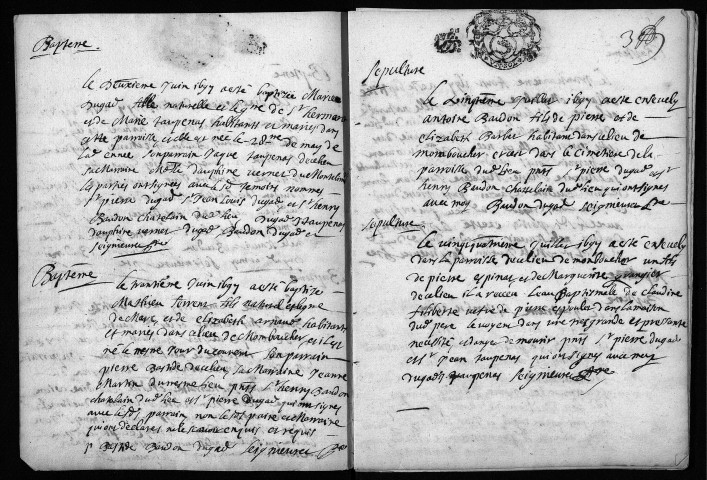 Bapteme.
le Deuxieme Juin 1697 a esté baptisée Marie
Dugad fille naturelle et legitime de Sr
et de Marie Taupenas habitants et mariés dans
cette parroisse icelle est née le 28me de may de
lad année son parrain Jaque Taupenas dudit lieu
sa Marraine dauphine vernet de Montelimar
les parties ont signés avec les tesmoins nommes
Sr pierre dugad Sr Jean Louis dugad et Sr henry
Baudon Chatelain dud lieu Dugad Taupenas
dauphine vernet Dugad Baudon Dugad et
Seigneuret
Baptême
le trantieme Juin 1697 a esté baptisé
Mathieu fils naturel et legitime
de Marc et de elizabeth arnaud habitants
et mariés dans ce lieu de Monboucher et il est
né le mesme Jour du couront son parrain
pierre Bastide dud lieu sa Marraine Jeanne
Martin du mesme lieu pnts Sr henry Baudon
chatelain dud lieu et Sr pierre Dugad qui ont signés
avec le dt parrain non le dt paire et la Marraine
qui ont declarés ne le scavoir enquis et requis
Bastide Baudon Dugad Seigneuret
3
Sepulture
le vingtieme Juillet 1697 a esté ensevely
antoine Baudon fils de pierre et de
elizabeth Barbe habitants dans ce lieu de
Monboucher et c'est dans le cimetiere de la
parroisse dud lieu pnts Sr pierre dugad et Sr
henry Baudon Chatelain dud lieu qui ont signés
avec moy Baudon Dugad Seigneuret
Sepulture
le vingtquatrieme Juillet 1697 a esté ensevely
dans la parroisse de ce lieu de Monboucher un fils
de pierre espinas et de Marguerite grangier
de ce lieu il a receu l'eau Baptismale de Claudine
dans la maison
dud pere le voyent dans une tres grande et pressante
necessité et dange de mourir pnts Sr pierre dugad
et Sr Jean Taupenas qui ont signés avec moy
dugad Taupenas Seigneuret